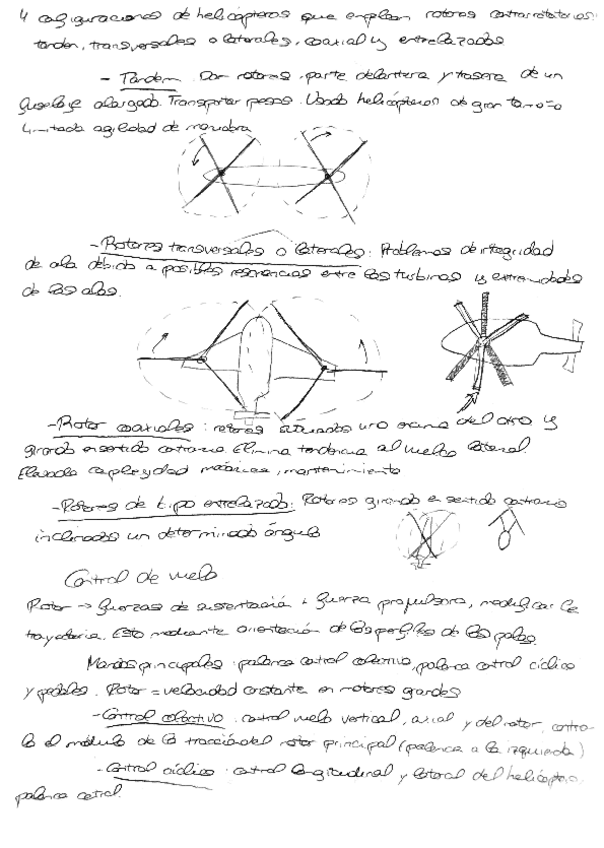 4 configuraciones de helicópteros que emplean rotores contrarrotatorios:
tandem, transversales o laterales, coaxial y entrelazados
- Tandem. Dos rotores parte delantera y trasera de un
fuselaje alargado. Transportar pesos. Usado helicópteros de gran tamaño
Limitada agilidad de maniobra
- Rotores transversales o laterales: Problemas de integridad
de ala debido a posibles resonancias entre las turbinas y extremidades
de las alas.
- Rotor coaxiales: rotores situados uno encima del otro y
girando en sentido contrario. Elimina tendencia al vuelo lateral.
Elevada complejidad mecánica, mantenimiento
- Rotores de tipo entrelazado: Rotores girando en sentido contrario
inclinados un determinado ángulo
Control de vuelo
Rotor → fuerzas de sustentación + fuerza propulsora, modificar la
trayectoria. Esto mediante orientación de los perfiles de las palas.
Mandos principales: palanca control colectivo, palanca control cíclico
y pedales. Rotor = velocidad constante en motores grandes
- Control colectivo: control vuelo vertical, axial y del rotor, contro-
la el módulo de la tracción del rotor principal (palanca a la izquierda)
- Control cíclico: control longitudinal y lateral del helicóptero,
palanca central.